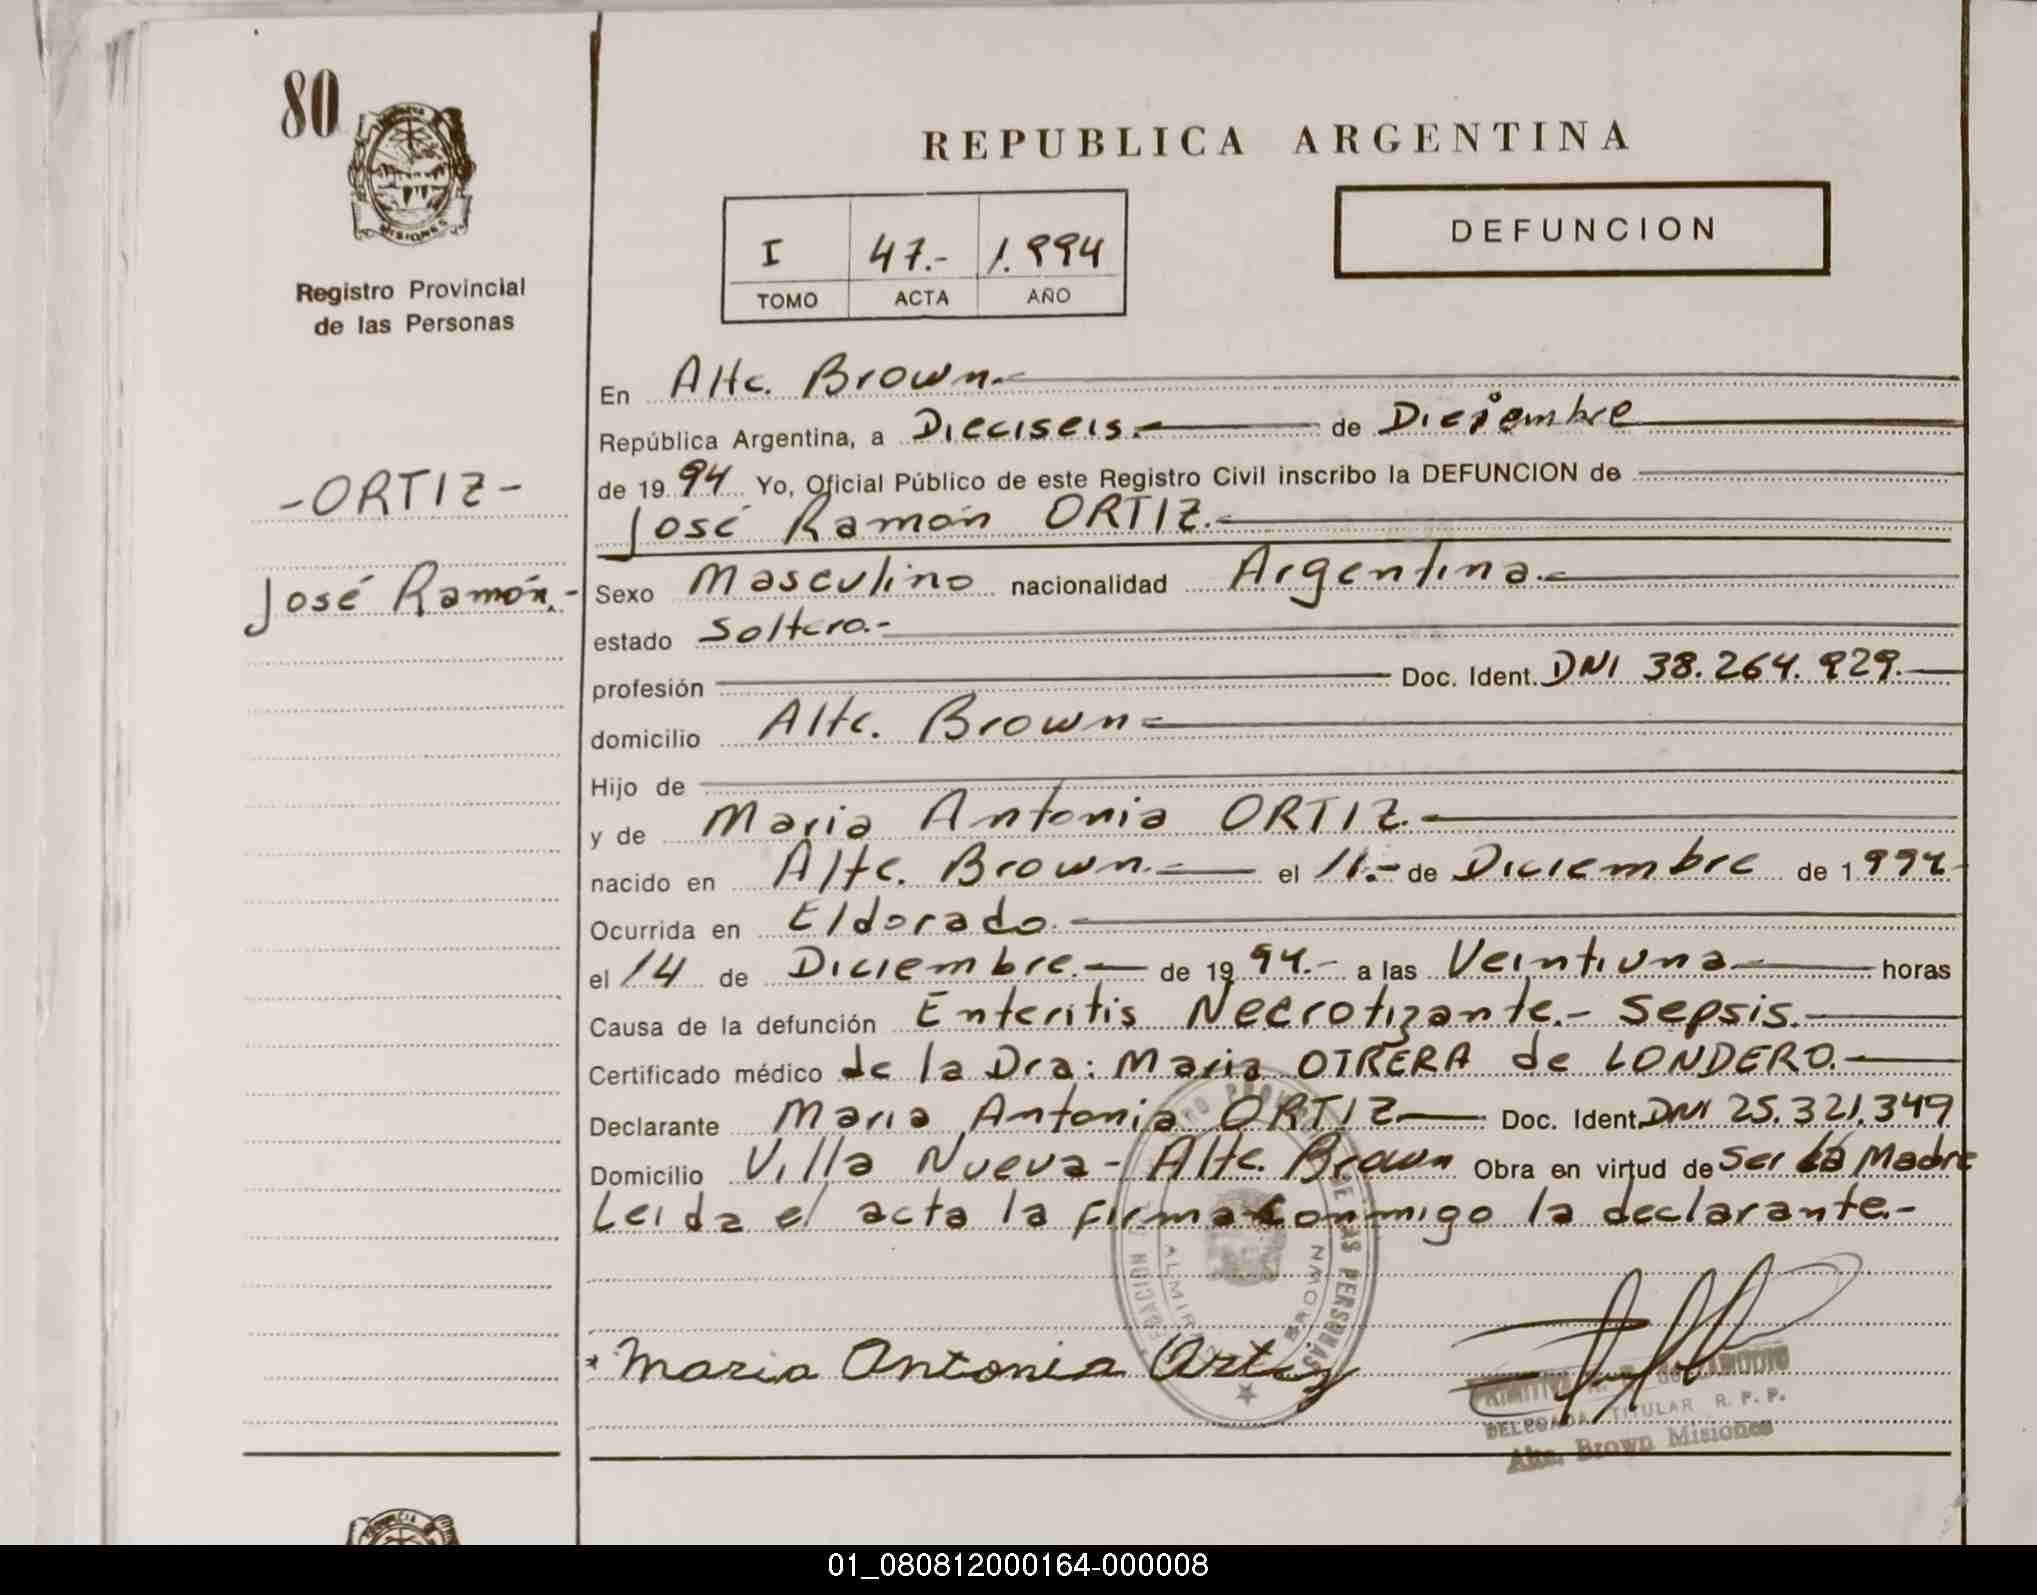 80
MISIONES
Registro Provincial
de las Personas
REPUBLICA ARGENTINA
DEFUNCION
I 47.- 1.994
TOMO ACTA AÑO
-ORTIZ-
José Ramón.-
En Alte. Brown.-
República Argentina, a Dieciseis.- de Diciembre
de 19 94 Yo, Oficial Público de este Registro Civil inscribo la DEFUNCION de
José Ramón ORTIZ.-
Sexo Masculino nacionalidad Argentina.-
estado Soltero.-
profesión Doc. Ident. DNI 38.264.929.-
domicilio Alte. Brown-
Hijo de
y de Maria Antonia ORTIZ.-
nacido en Alte. Brown.- el 11.- de Diciembre de 1994.-
Ocurrida en Eldorado.-
el 14 de Diciembre.- de 19 94.- a las Veintiuna horas
Causa de la defunción Enteritis Necrotizante.- Sepsis.-
Certificado médico de la Dra: Maria OTRERA de LONDERO.-
Declarante Maria Antonia ORTIZ Doc. Ident. DNI 25.321.349
Domicilio Villa Nueva - Alte. Brown Obra en virtud de Ser la Madre
Leida el acta la firma conmigo la declarante.-
DE LAS PERSONAS
BROWN
* Maria Antonia Ortiz
DELEGADA TITULAR R. P. P.
Alte. Brown Misiones
01_080812000164-000008